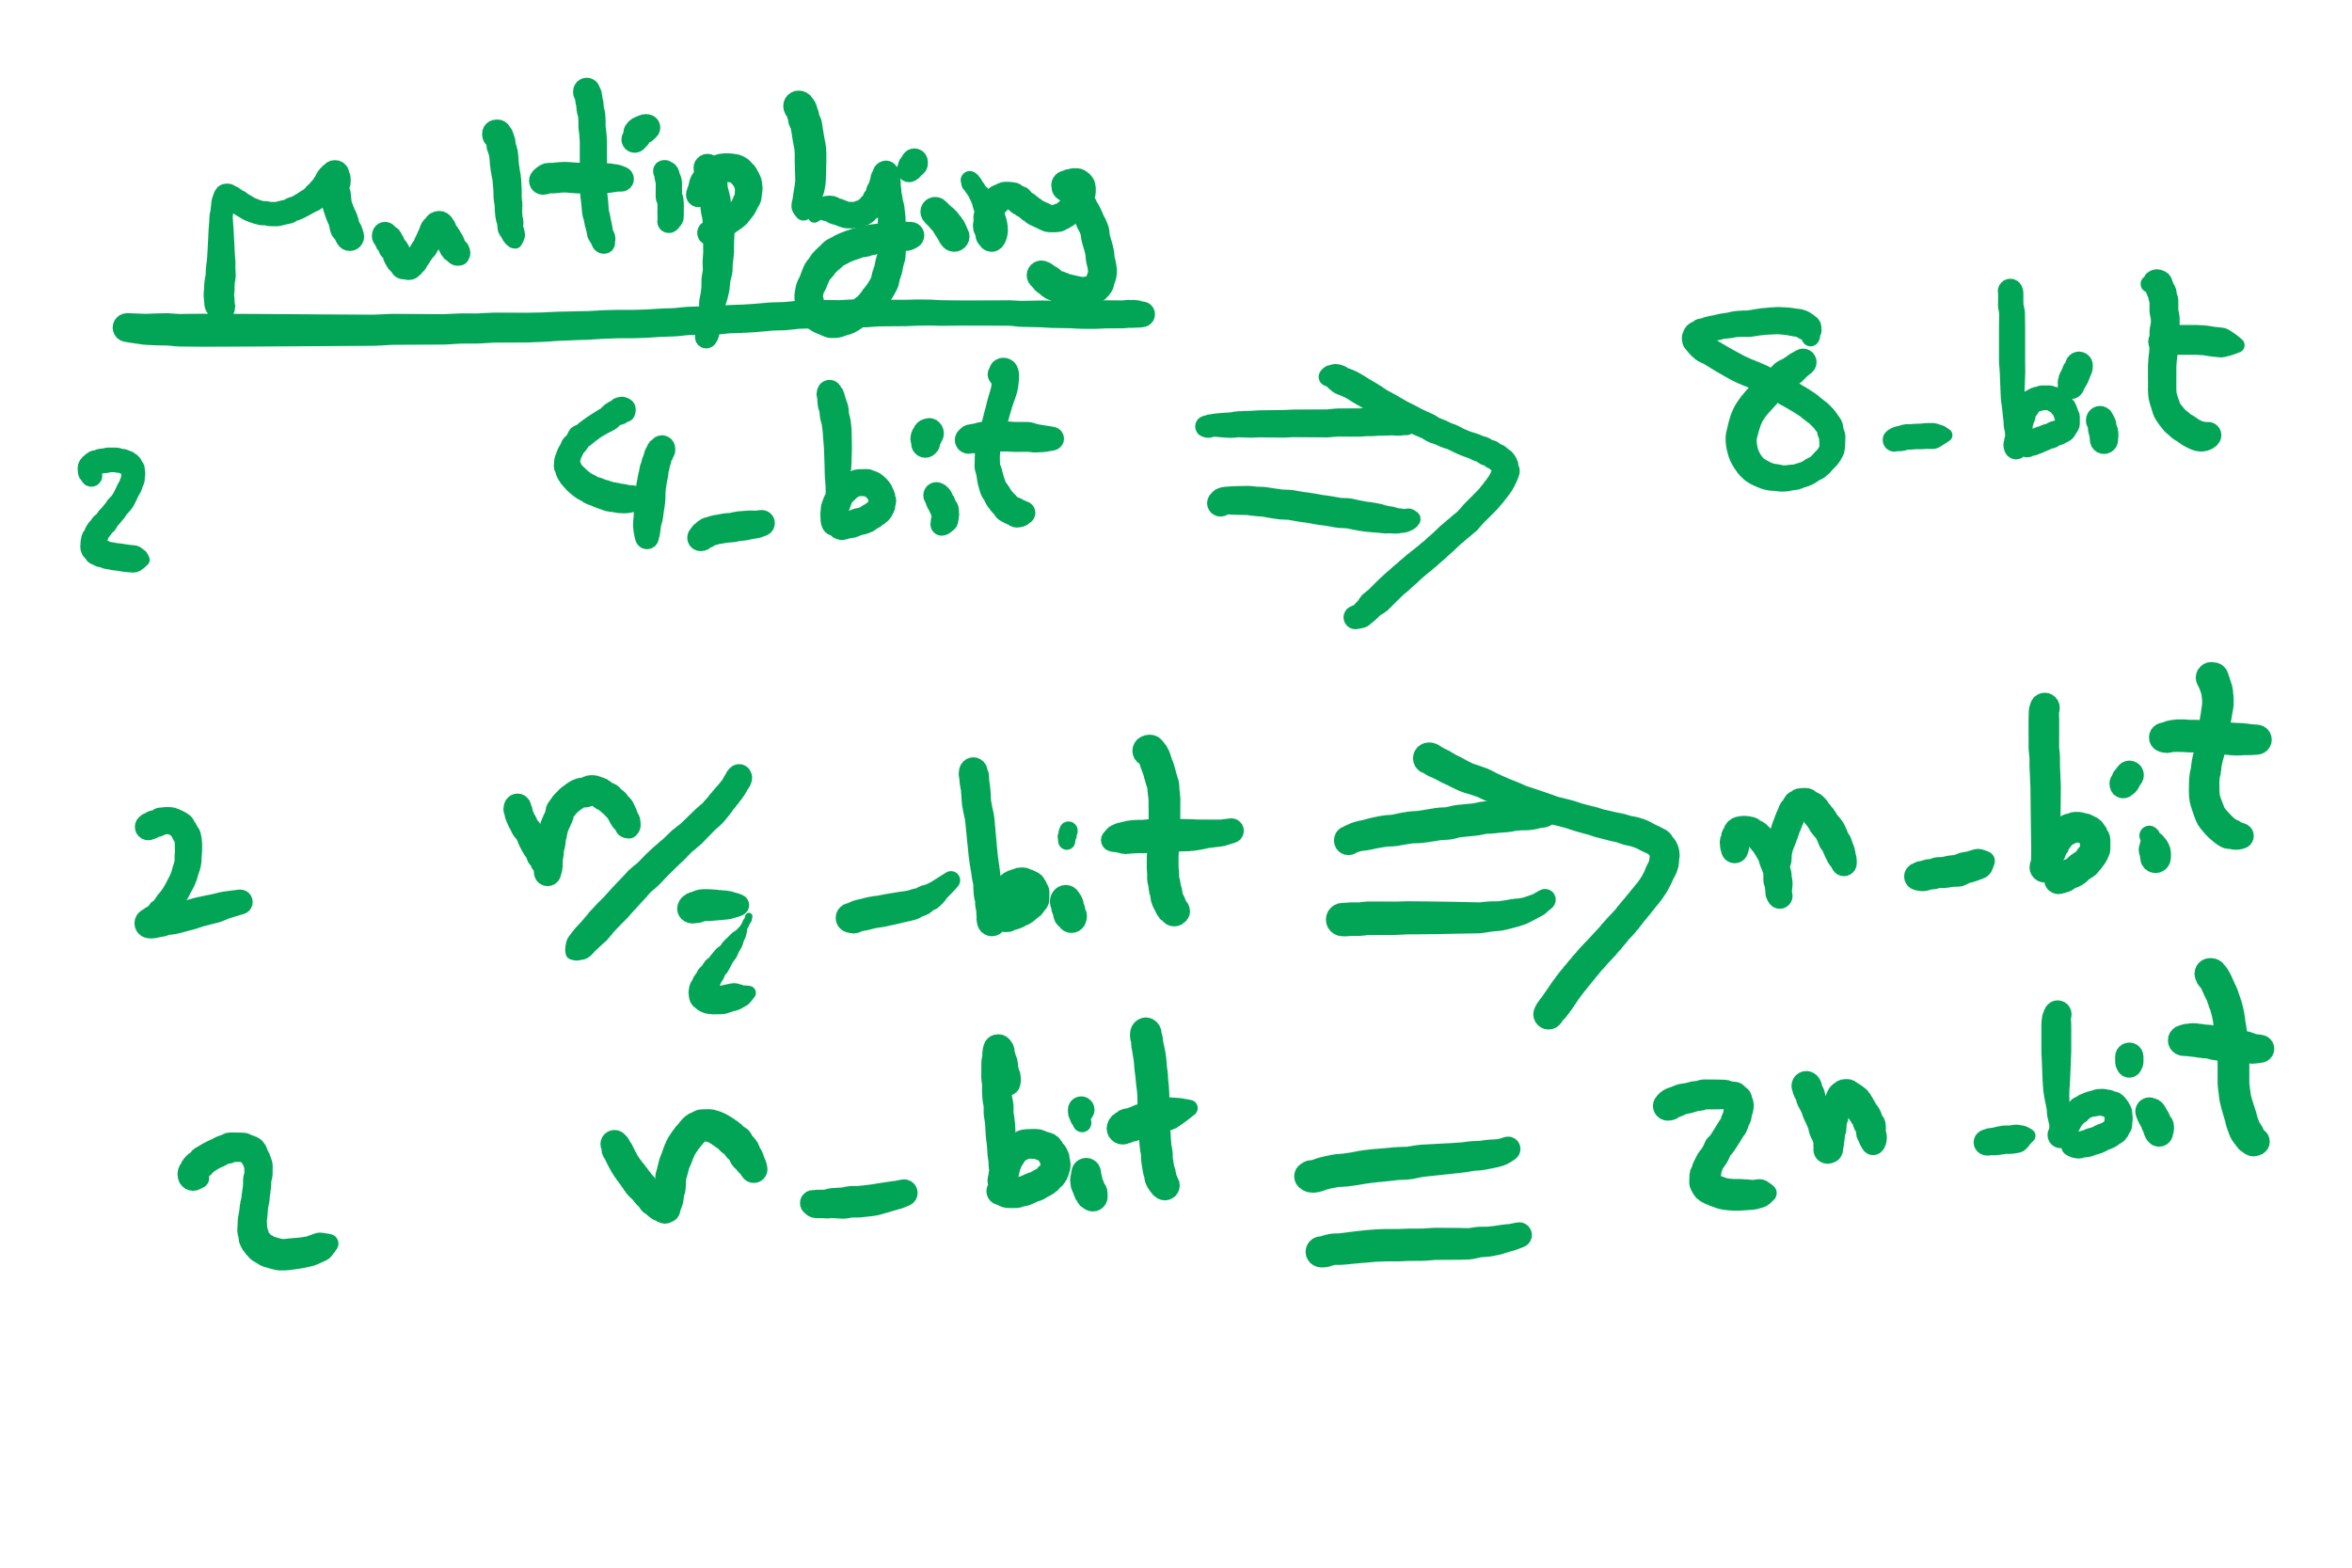 multiplying
2 4-bit => 8-bit
2 n/2-bit => n-bit
2 n-bit = 2n-bit